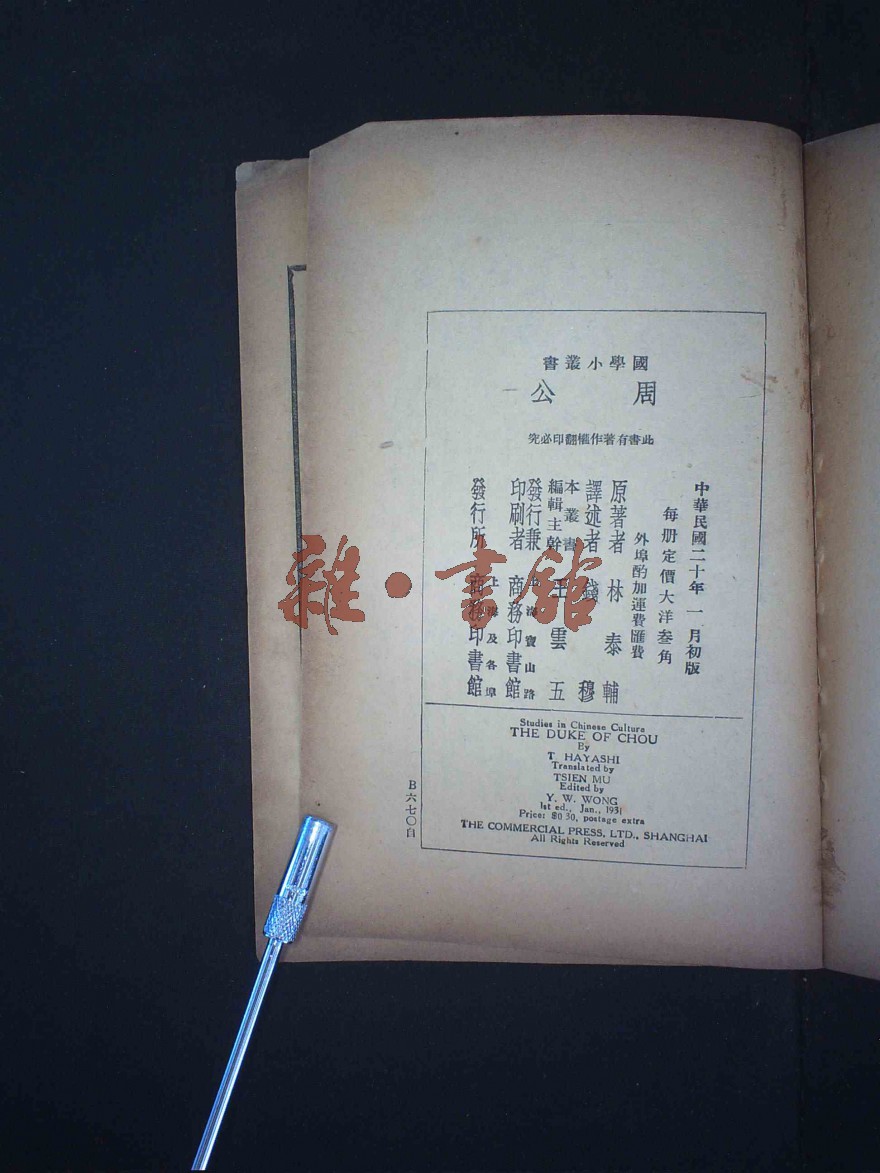 國學小叢書
周公
此書有著作權翻印必究
中華民國二十年一月初版
每册定價大洋叁角
外埠酌加運費匯費
原著者 林泰輔
譯述者 錢穆
本叢書編輯主幹 王雲五
發行兼印刷者 上海寶山路 商務印書館
發行所 上海及各埠 商務印書館
Studies in Chinese Culture
THE DUKE OF CHOU
By
T. HAYASHI
Translated by
TSIEN MU
Edited by
Y. W. WONG
1st ed., Jan., 1931
Price: $0.30, postage extra
THE COMMERCIAL PRESS, LTD., SHANGHAI
All Rights Reserved
B六七〇白
雜·書館